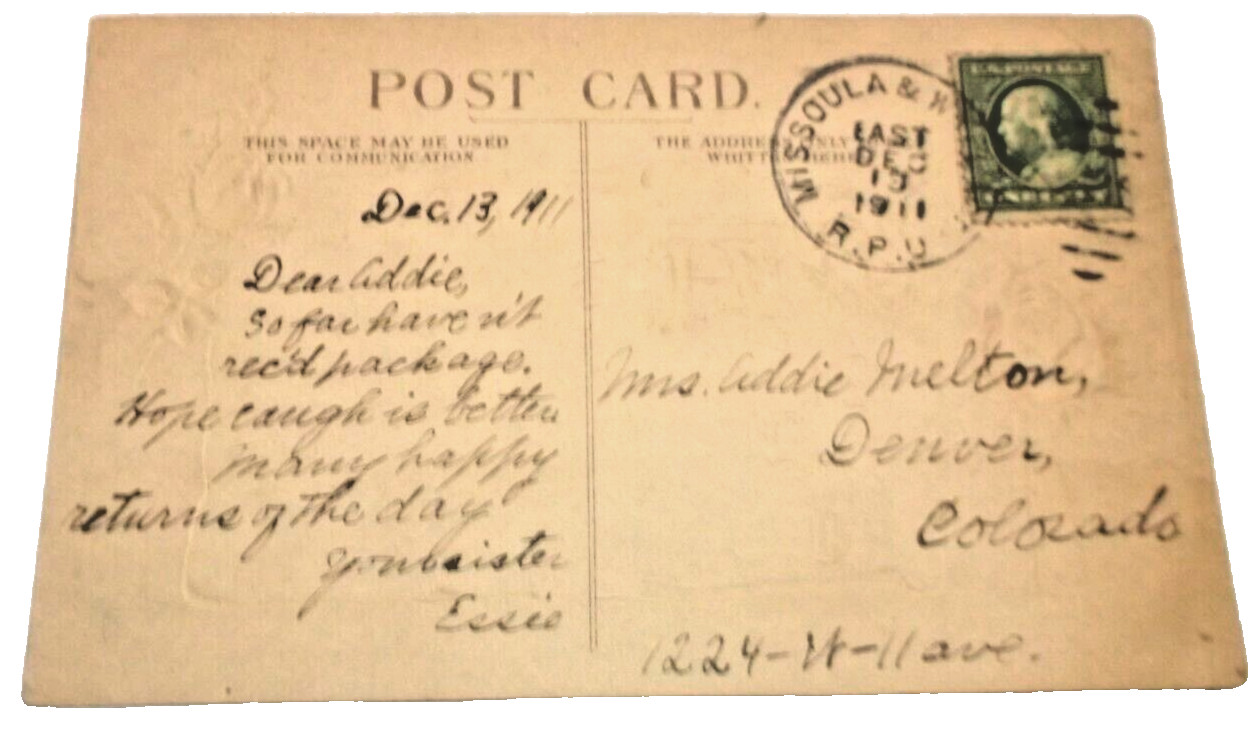 POST CARD.
THIS SPACE MAY BE USED
FOR COMMUNICATION
THE ADDRESS ONLY
WRITTEN HERE
MISSOULA & W
EAST
DEC
13
1911
R.P.O
Dec. 13, 1911
Dear Addie,
So far haven't
rec'd package.
Hope caugh is better
many happy
returns of the day
your sister
Essie
Mrs. Addie Melton,
Denver,
Colorado
1224-W-11 ave.